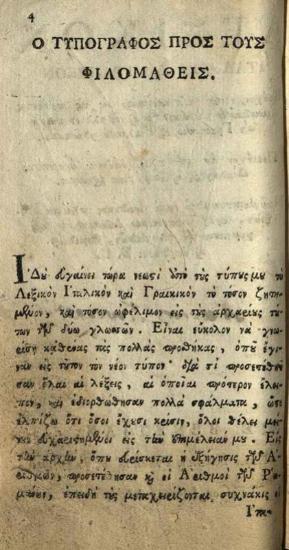 4
Ο ΤΥΠΟΓΡΑΦΟΣ ΠΡΟΣ ΤΟΥΣ
ΦΙΛΟΜΑΘΕΙΣ.
ΙΔοὺ εὐγαίνει τώρα νεωστὶ ἀπὸ τοὺς τύπους μου τὸ
Λεξικὸν Ἰταλικὸν καὶ Γραικικὸν τὸ τόσον ζητη-
μένον, καὶ τόσον ὠφέλιμον εἰς τοὺς ἀρχαρίους τού-
των τῶν δύω γλωσσῶν. Εἶναι εὔκολον νὰ γνω-
ρίσῃ καθένας τὰς πολλὰς προσθήκας, ὁποῦ ἔγι-
ναν εἰς τοῦτον τὸν νέον τύπον· διατὶ προσετέθη-
σαν ὅλαι αἱ λέξεις, αἱ ὁποῖαι πρότερον ἔλει-
πον, καὶ ἐδιορθώθησαν πολλὰ σφάλματα, ὥστε
ἐλπίζω ὅτι ὅσοι ἔχουσι κρίσιν, ὅλοι θέλει μεί-
νει εὐχαριστημένοι εἰς τὴν ἐπιμέλειάν μου. Εἰς
τὴν ἀρχὴν, ὁποῦ εὑρίσκεται ἡ ἐξήγησις τῶν Ἀ-
ριθμῶν, προσετέθησαν καὶ οἱ Ἀριθμοὶ τῶν Ῥω-
μάνων, ἐπειδὴ τοὺς μεταχειρίζονται συχνάκις οἱ
Ἰτα-